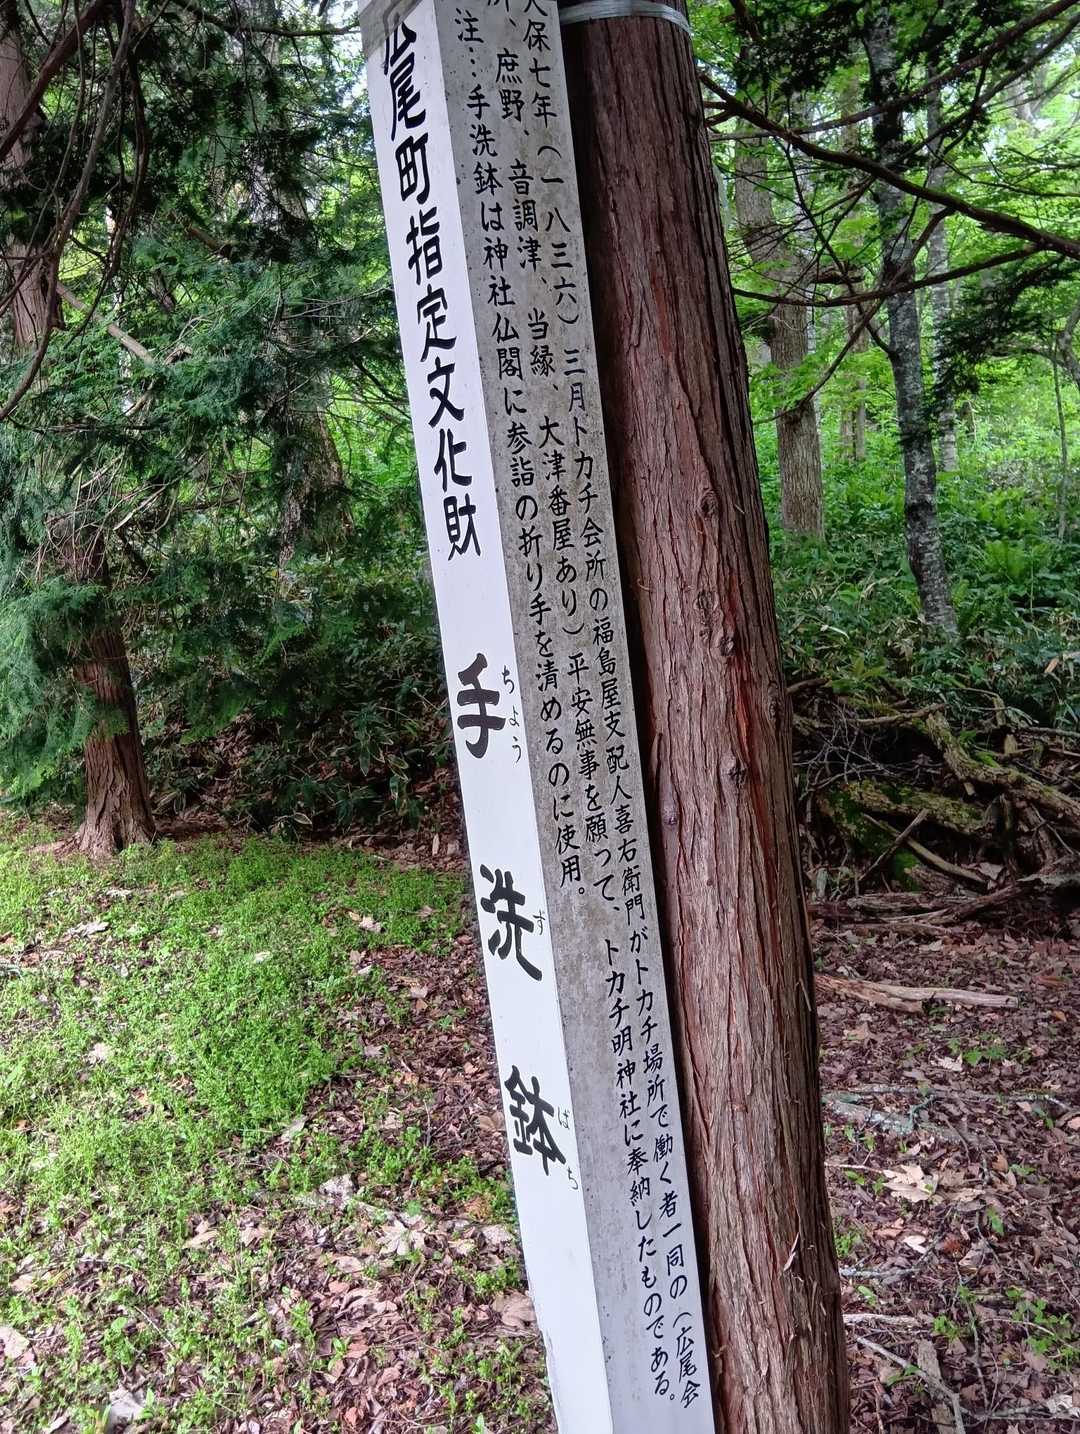 広尾町指定文化財 手洗鉢
ちょうずばち
天保七年（一八三六）三月トカチ会所の福島屋支配人喜右衛門がトカチ場所で働く者一同の（広尾会
所、庶野、音調津、当縁、大津番屋あり）平安無事を願って、トカチ明神社に奉納したものである。
注…手洗鉢は神社仏閣に参詣の折り手を清めるのに使用。